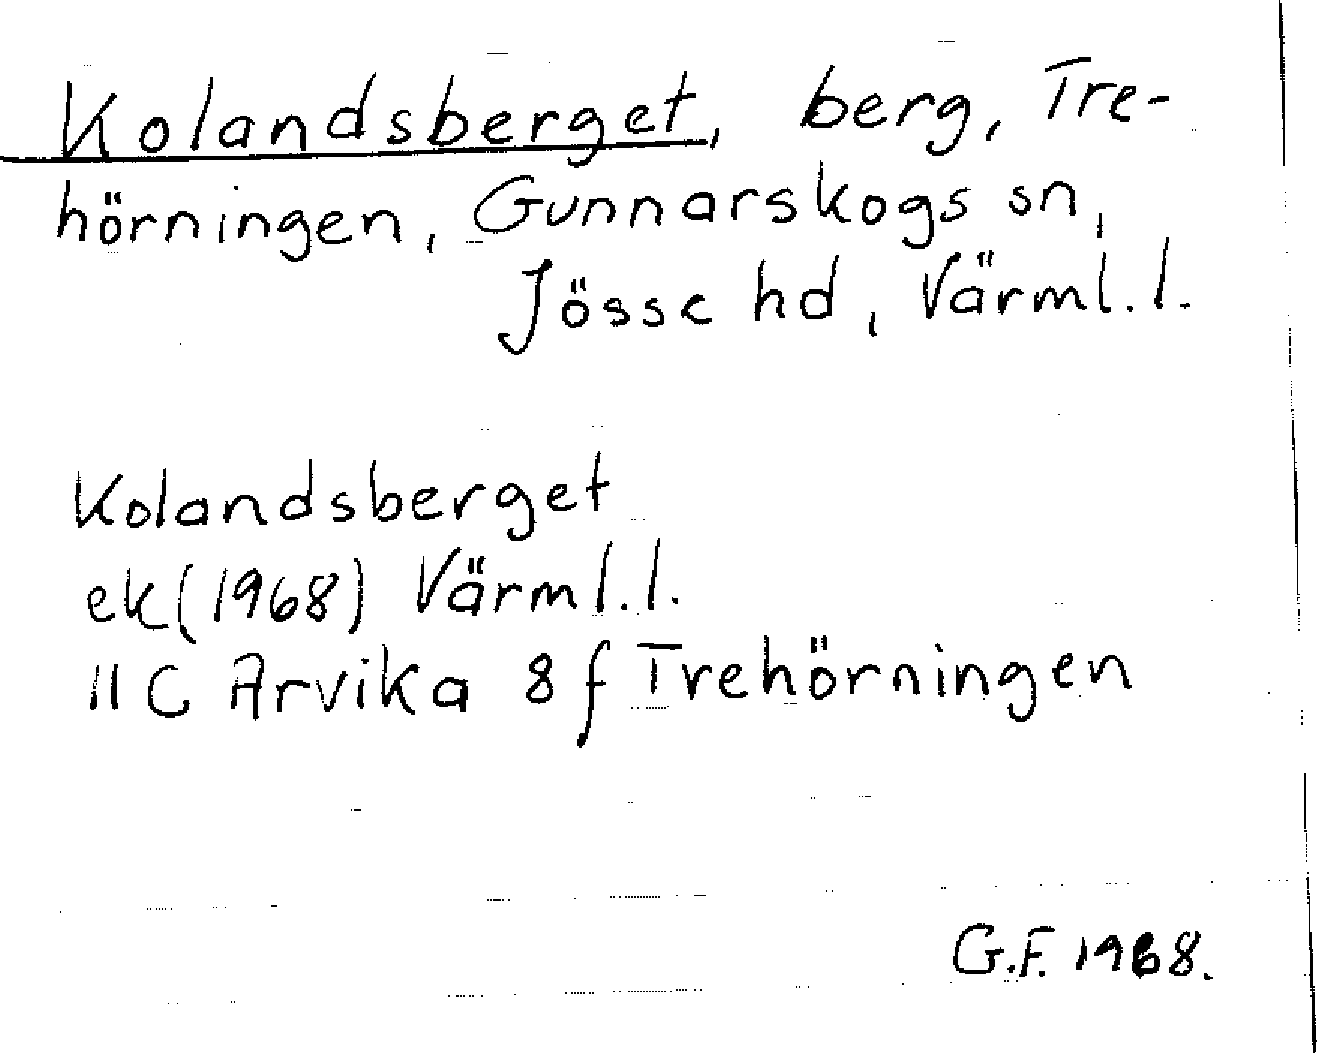 Kolandsberget, berg, Tre-
hörningen, Gunnarskogs sn,
Jösse hd, Värml. l.
Kolandsberget
ek (1968) Värml. l.
11 C Arvika 8 f Trehörningen
G.F. 1968.